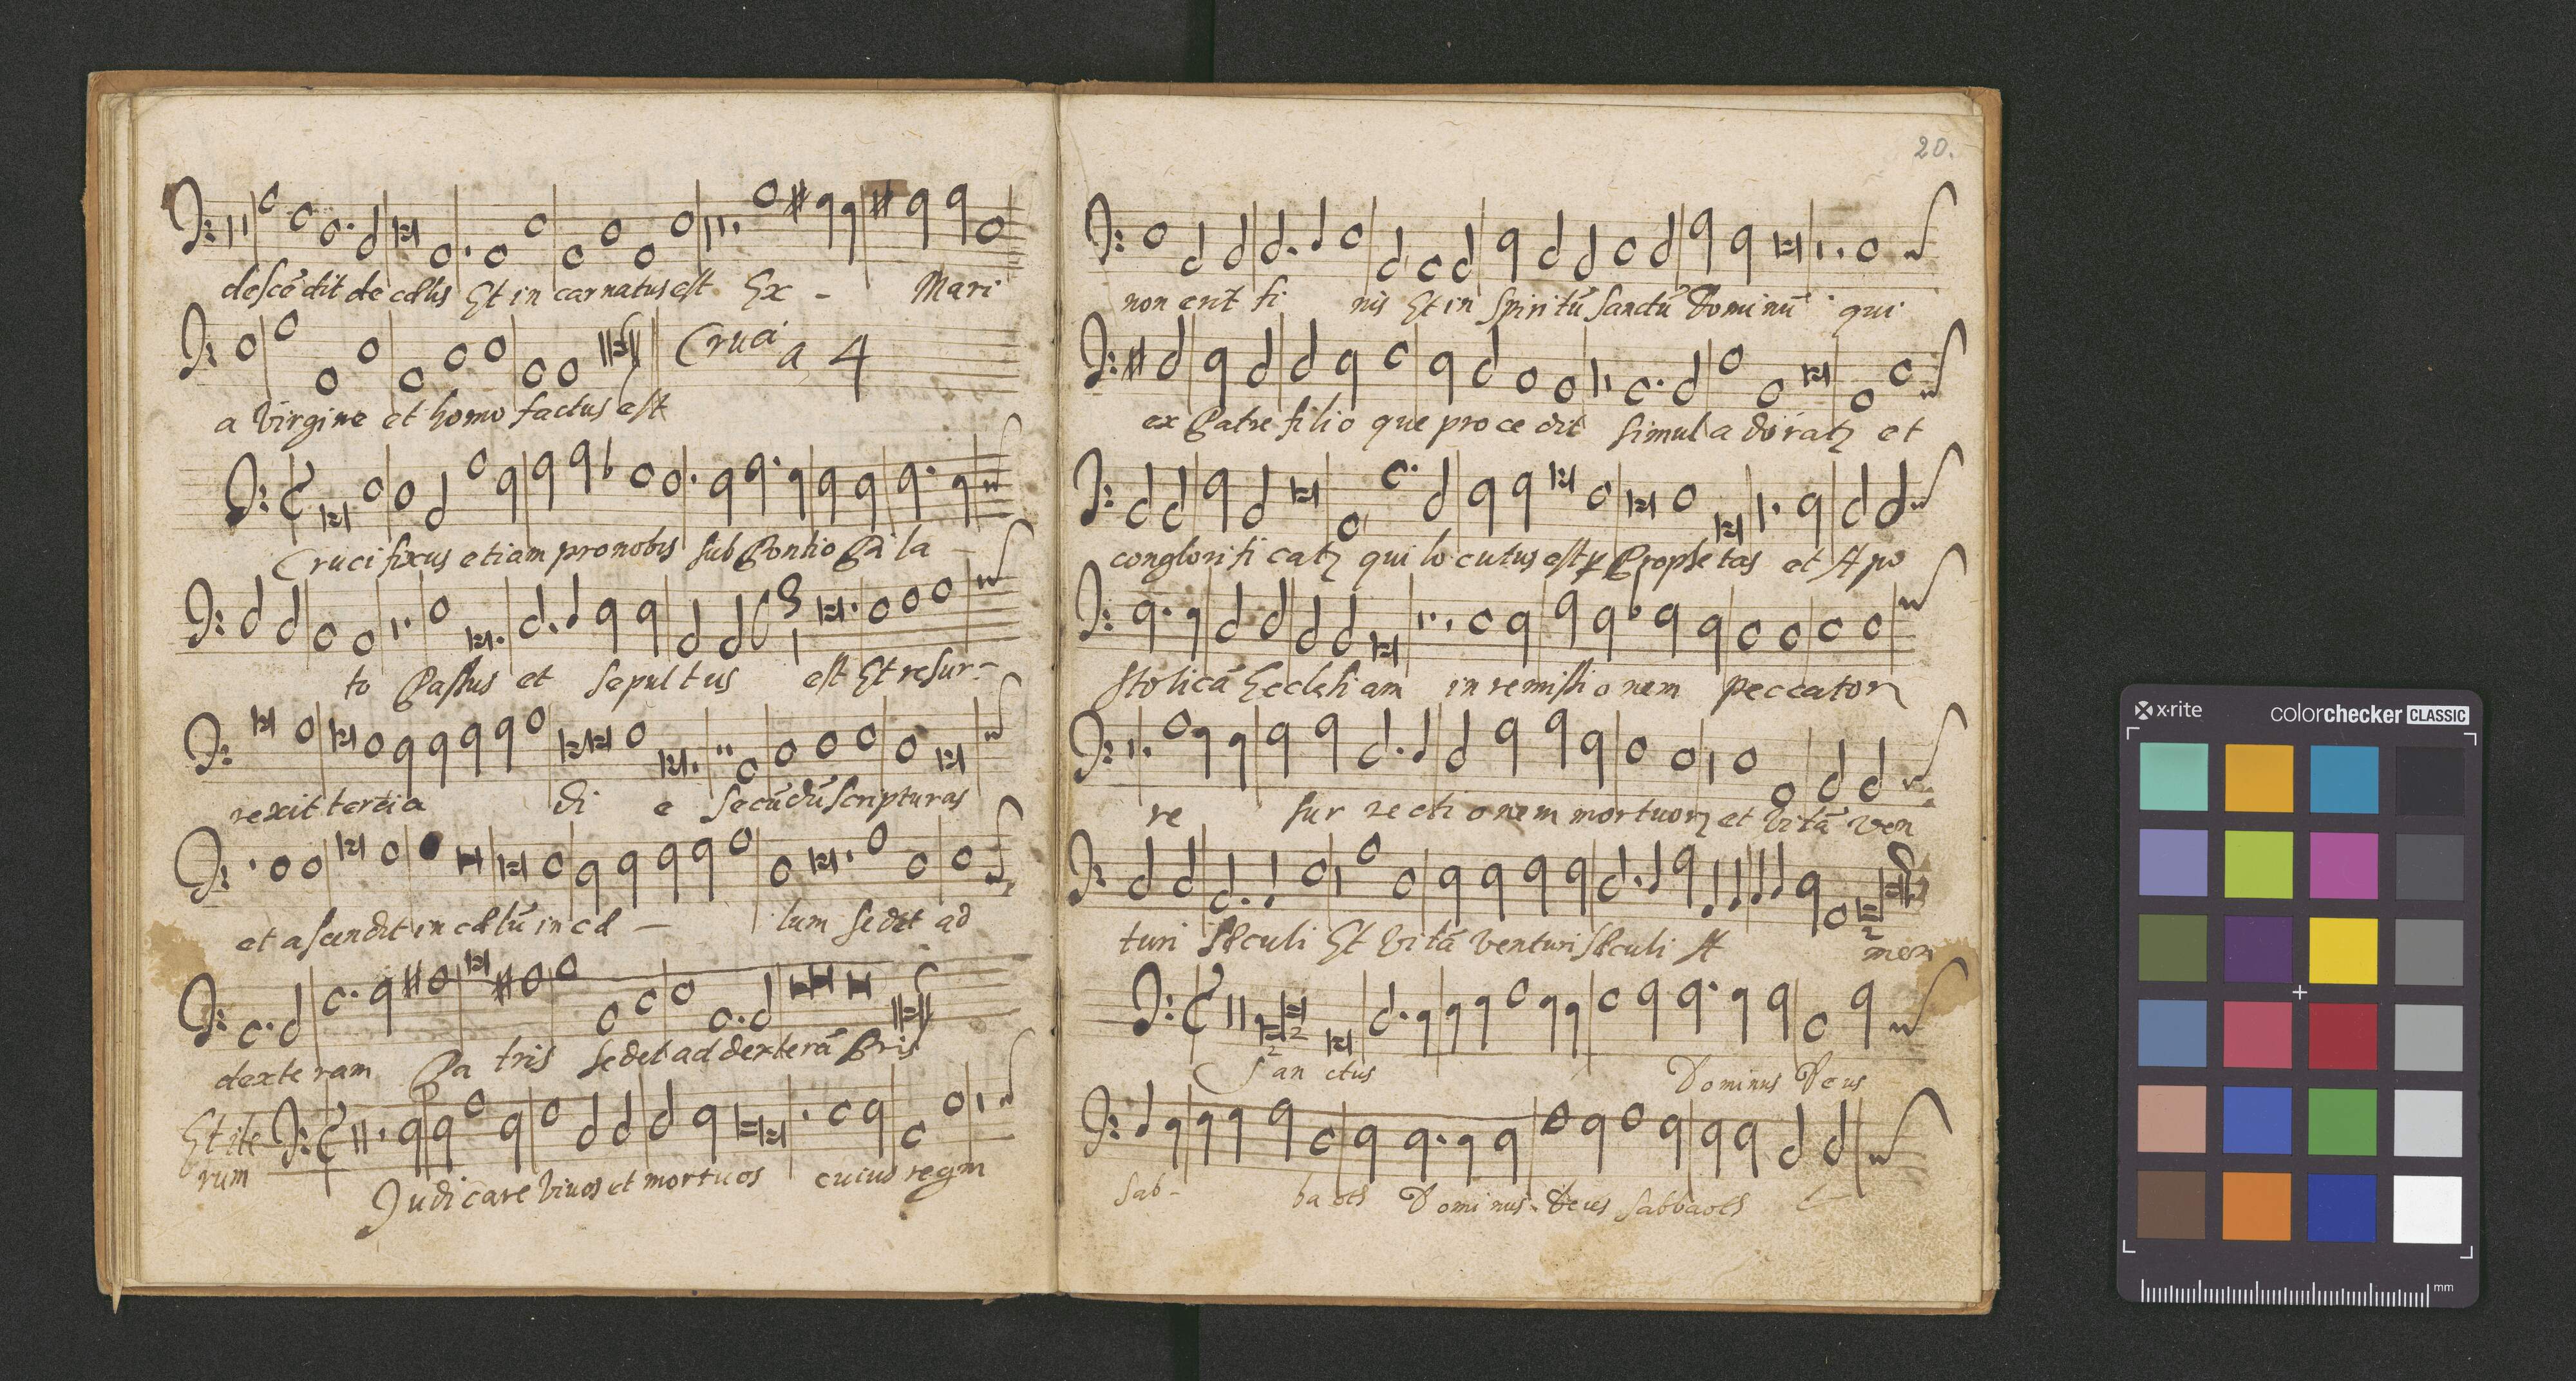 descēdit de cælis Et in carnatus est Ex - Mari
Cruci a 4
a Virgine et homo factus est
Cruci fixus etiam pro nobis sub Pontio Pi la
to Passus et sepultus est Et resur-
rexit tertia di e secūdū scripturas
et ascendit in cælū in cæ - lum sedet ad
dexteram Pa tris sedet ad dexterā Pris
Et ite
rum
Judicare vivos et mortuos cuius regni
20.
non erit fi nis Et in Spiritū Sanctū Dominū qui
ex Patre filio que procedit simul adoratz et
conglorificatz qui locutus est p Prophetas et Apo
stolicā Ecclesiam in remissionem peccator
re sur rectionem mortuorz et vitā ven
turi sæculi Et vitā venturi sæculi A men
San ctus Dominus Deus
Sab- baoth Dominus Deus Sabbaoth
x-rite
colorchecker CLASSIC
mm